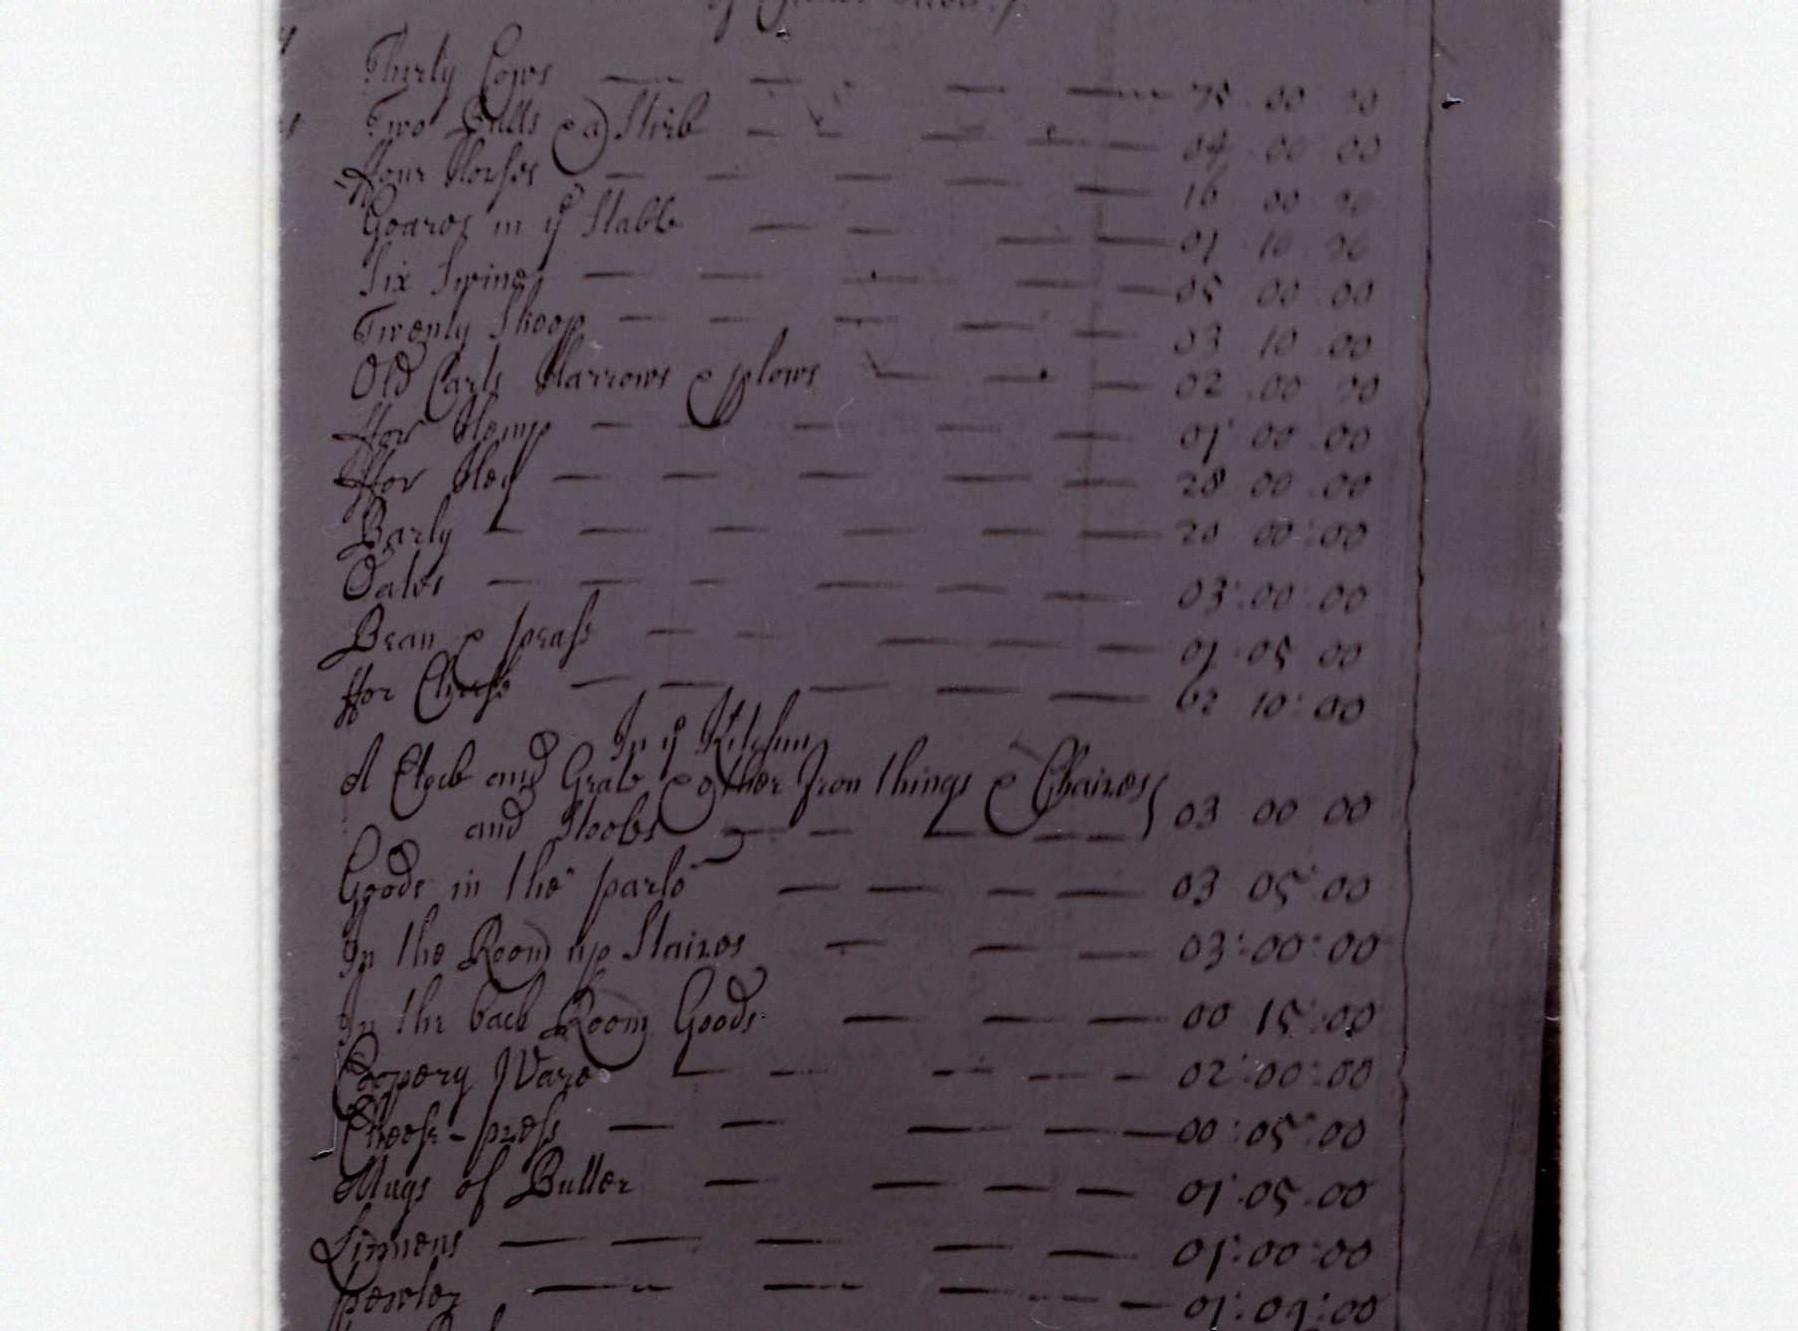 Thirty Cows 75 00 00
Two Bulls & a Stirk 04 00 00
ffour Horses 16 00 00
Geares in ye Stable 01 10 00
Six Swine 05 00 00
Twenty Sheep 03 10 00
Old Carts Harrows & plows 02 00 00
ffor Hemp 01 00 00
ffor Hey 28 00 00
Barly 20 00:00
Oates 03:00:00
Bean & pease 01:05 00
ffor Cheese 62 10:00
In ye Kitchin
A Clock and Grate & other Iron things & Chaires
and Stooles 03 00 00
Goods in the parlo 03 05 00
In the Room up Staires 03:00:00
In the back Room Goods 00 15:00
Coopery Ware 02:00:00
Cheese-press 00:05:00
Mugs of Butter 01:05:00
Linnens 01:00:00
pewter 01:09:00